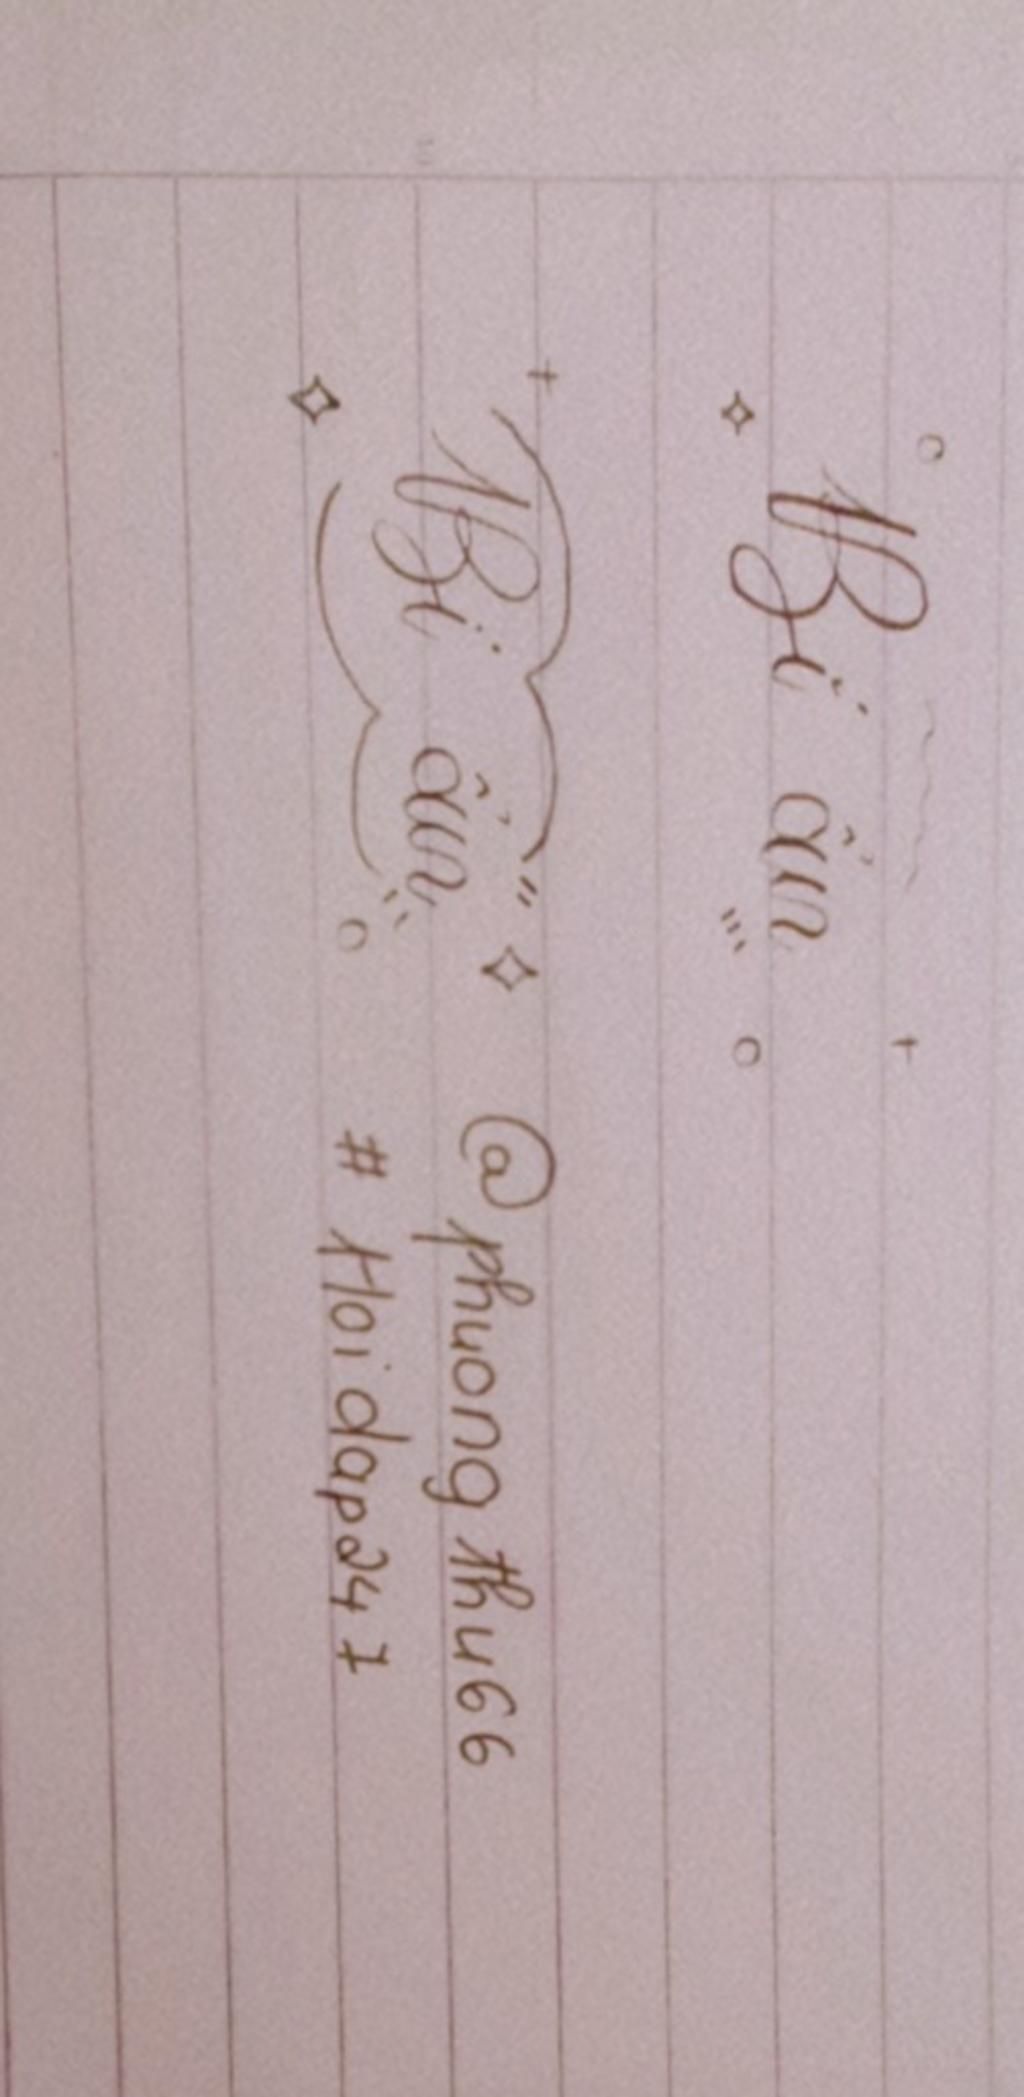 Bí ẩn
Bí ẩn
@phuongthu66
#Hoidap247